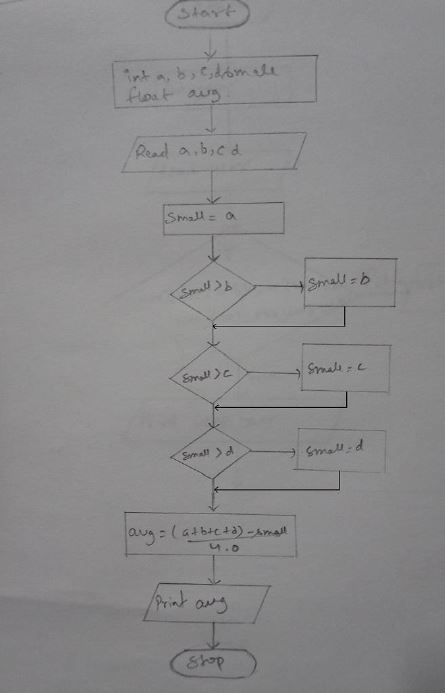 Start
int a, b, c, d, small
float avg
Read a, b, c d
Small = a
Small > b
Small = b
Small > c
Small = c
Small > d
Small = d
avg = (a+b+c+d) - small
4.0
Print avg
Stop